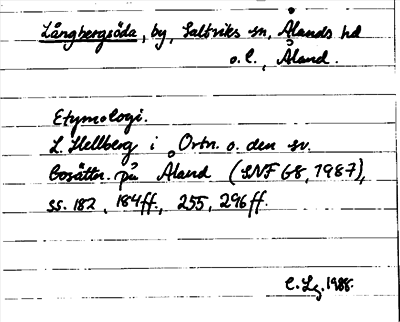 Långbergsöda, by, Saltviks sn, Ålands hd
o. l., Åland.
Etymologi.
L. Hellberg i Ortn. o. den sv.
bosättn. på Åland (SNF 68, 1987),
ss. 182, 184ff., 255, 296ff.
C. Lg. 1988.